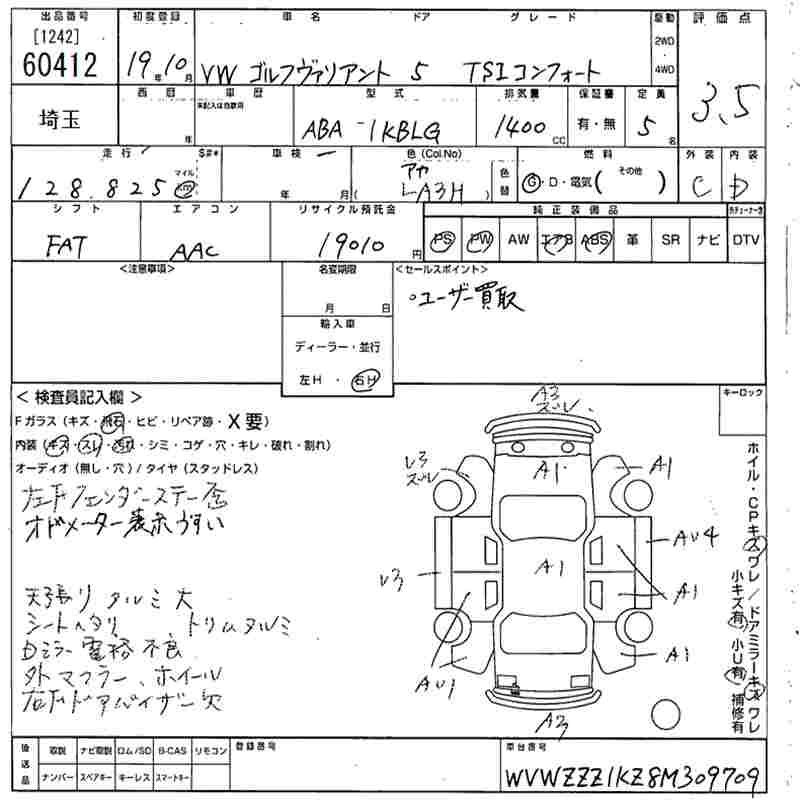 出品番号 初度登録 車名 ドア グレード 駆動 評価点
[1242]
60412 19年10月 VW ゴルフヴァリアント 5 TSIコンフォート 2WD 4WD 3.5
埼玉 西暦 年 車歴 未記入は自家用 型式 ABA-1KBLG 排気量 1400cc 保証書 有・無 定員 5名
走行 $#* 車検 色(Col.No) 色替 燃料 外装 内装
128.825 マイル km 年 月 アカ LA3H G・D・電気( その他 ) C D
シフト エアコン リサイクル預託金 純正装備品 外チューナー含
FAT AAC 19010円 PS PW AW エアB ABS 革 SR ナビ DTV
<注意事項> 名変期限 <セールスポイント>
月 日 ・ユーザー買取
輸入車
ディーラー・並行
左H・右H
<検査員記入欄> キーロック
Fガラス(キズ・飛石・ヒビ・リペア跡・X要)
内装(キズ・スレ・汚れ・シミ・コゲ・穴・キレ・破れ・割れ)
オーディオ(無し・穴)/タイヤ(スタッドレス)
左Fフェンダーステー歪
オドメーター表示うすい
天張りタルミ大
シートヘタリ トリムタルミ
Dミラー電格不良
外マフラー、ホイール
右Fドアバイザー欠
A3
ズレ
U3
ズレ
A1 A1
AU4
U3 A1
A1
AU1 A1
A3
ホイル・CPキズワレ/ドアミラーキズワレ
小キズ有 小U有 補修有
後送品 取説 ナビ取説 ロム/SD B-CAS リモコン 登録番号 車台番号
ナンバー スペアキー キーレス スマートキー WVWZZZ1KZ8M309709